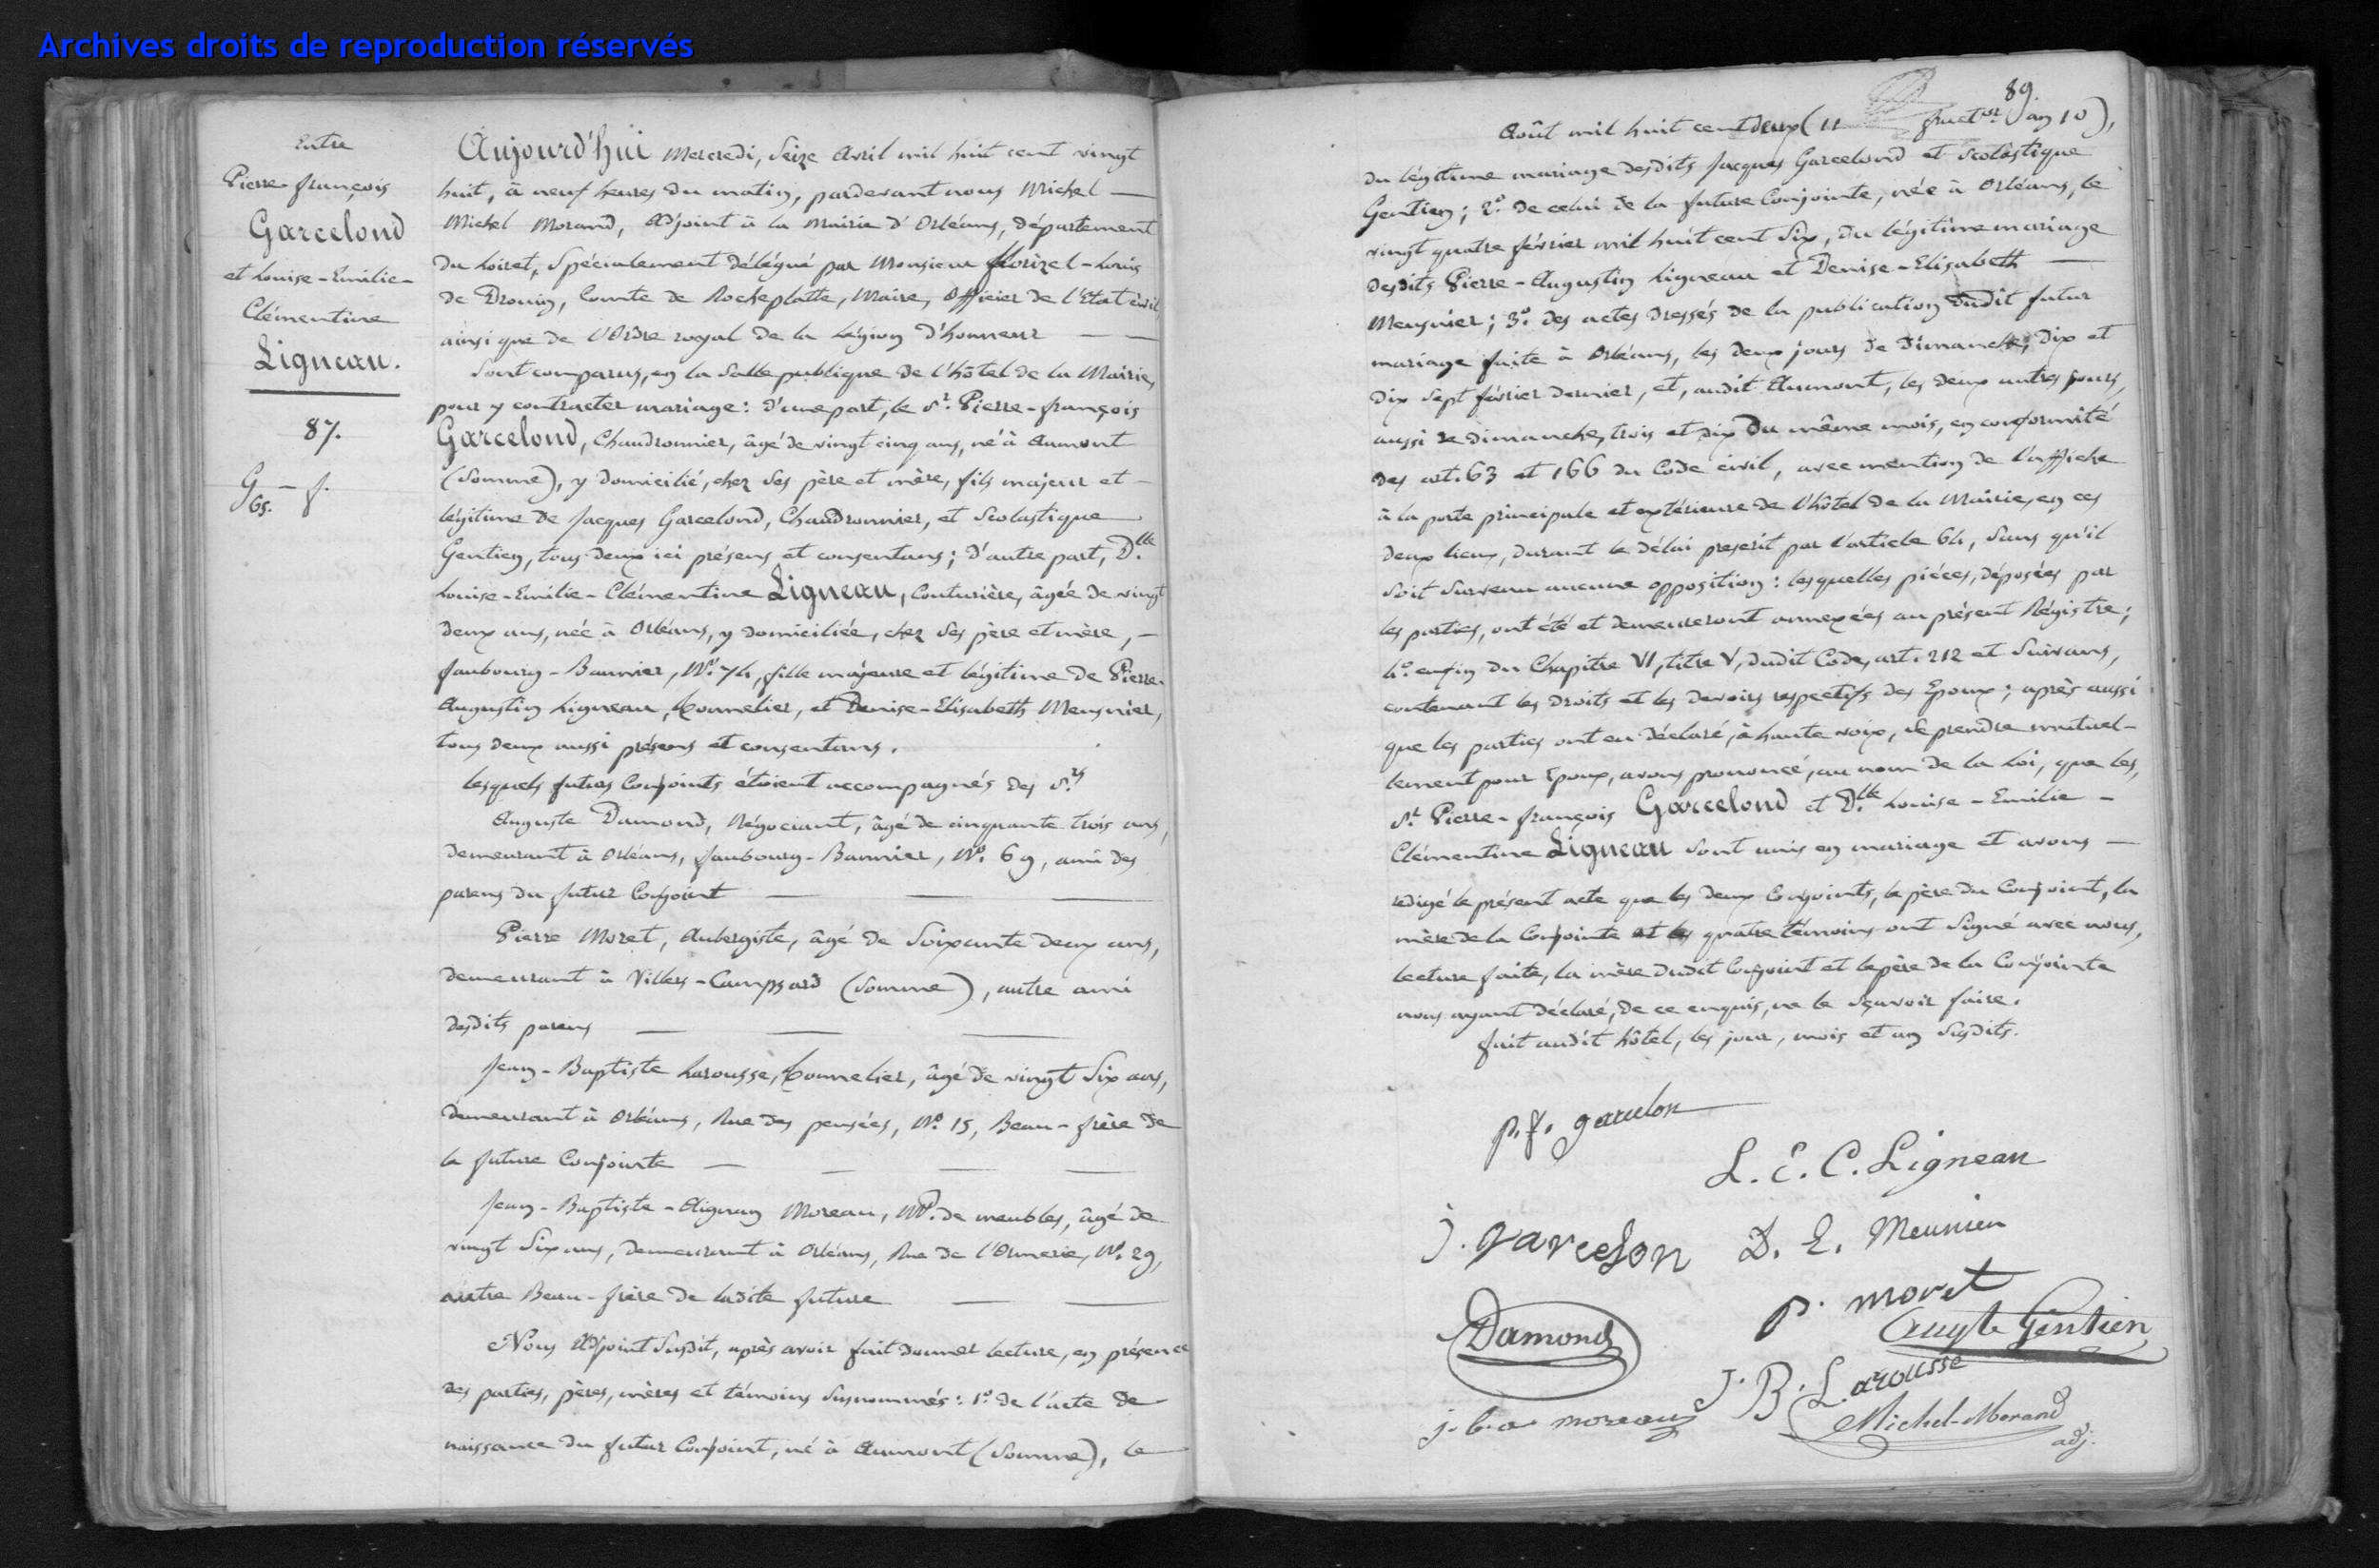 Archives droits de reproduction réservés
Entre
Pierre-françois
Garcelond
et Louise-Emilie-
Clémentine
Ligneau.
87.
Aujourd'hui Mercredi, Seize Avril mil huit cent vingt
huit, à neuf heures du matin, pardevant nous Michel
Michel Morand, Adjoint à la Mairie d'Orléans, département
du Loiret, Spécialement délégué par Monsieur florizel-Louis
de Drouin, Comte de Rocheplatte, Maire, Officier de l'Etat civil
ainsi que de l'Ordre royal de la Légion d'honneur
Sont comparus, en la Salle publique de l'hôtel de la Mairie,
pour y contracter mariage: d'une part, le Sr. Pierre-françois
Garcelond, Chaudronnier, âgé de vingt cinq ans, né à Aumont
(Somme), y domicilié, chez ses père et mère, fils majeur et
légitime de Jacques Garcelond, Chaudronnier, et Scolastique
Gentien, tous deux ici présens et consentans; d'autre part, Dlle.
Louise-Emilie-Clémentine Ligneau, Couturière, âgée de vingt
deux ans, née à Orléans, y domiciliée, chez ses père et mère,
faubourg-Bannier, No. 74, fille majeure et légitime de Pierre-
Augustin Ligneau, tonnelier, et Denise-Elisabeth Meusnier,
tous deux aussi présens et consentans.
Lesquels futurs Conjoints étoient accompagnés des Srs
Auguste Damond, Négociant, âgé de cinquante trois ans,
demeurant à Orléans, faubourg-Bannier, No. 69, ami des
parens du futur Conjoint
Pierre Moret, Aubergiste, âgé de Soixante deux ans,
demeurant à Villers-Campsard (Somme), autre ami
desdits parens
Jean-Baptiste Larousse, tonnelier, âgé de vingt Six ans,
demeurant à Orléans, Rue des pensées, No. 15, Beau-frère de
la future Conjointe
Jean-Baptiste-Aignan Moreau, Md. de meubles, âgé de
vingt Six ans, demeurant à Orléans, Rue de l'Ormerie, No. 29,
autre Beau-frère de ladite future
Nous Adjoint Susdit, après avoir fait donner lecture, en présence
des parties, pères, mères et témoins Susnommés: 1o. de l'acte de
naissance du futur Conjoint, né à Aumont (Somme), le
89.
Août mil huit cent deux (11 fructor. an 10),
du légitime mariage desdits Jacques Garcelond et Scolastique
Gentien; 2o. de celui de la future Conjointe, née à Orléans, le
vingt quatre février mil huit cent Six, du légitime mariage
desdits Pierre-Augustin Ligneau et Denise-Elisabeth
Meusnier; 3o. des actes dressés de la publication dudit futur
mariage faite à Orléans, les deux jours de dimanche, dix et
dix sept février dernier, et, audit Aumont, les deux autres jours,
aussi de dimanche, trois et dix du même mois, en conformité
des art. 63 et 166 du Code civil, avec mention de l'affiche
à la porte principale et extérieure de l'hôtel de la Mairie, en ces
deux lieux, durant le délai prescrit par l'article 64, Sans qu'il
Soit Survenu aucune opposition: lesquelles pièces, déposées par
les parties, ont été et demeureront annexées au présent Régistre;
4o. enfin du Chapitre VI, titre V, dudit Code, art. 212 et Suivans,
contenant les droits et les devoirs respectifs des Epoux; après aussi
que les parties ont eu déclaré, à haute voix, se prendre mutuel-
lement pour Epoux, avons prononcé, au nom de la Loi, que les,
Sr. Pierre-françois Garcelond et Dlle. Louise-Emilie-
Clémentine Ligneau sont unis en mariage et avons
redigé le présent acte que les deux Conjoints, le père du Conjoint, la
mère de la Conjointe et les quatre témoins ont Signé avec nous,
lecture faite, la mère dudit Conjoint et le père de la Conjointe
nous ayant déclaré, de ce enquis, ne le Sçavoir faire.
fait audit hôtel, les jour, mois et an Susdits.
p. f. garcelon
L. E. C. Ligneau
j. garcelon D. E. Meunier
p. moret
Damond Augte Gentien
J. B. Larousse
j. b. a moreau Michel-Morand
adj.